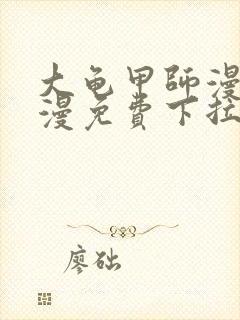 大龟甲師漫
漫免費下拉
廖础